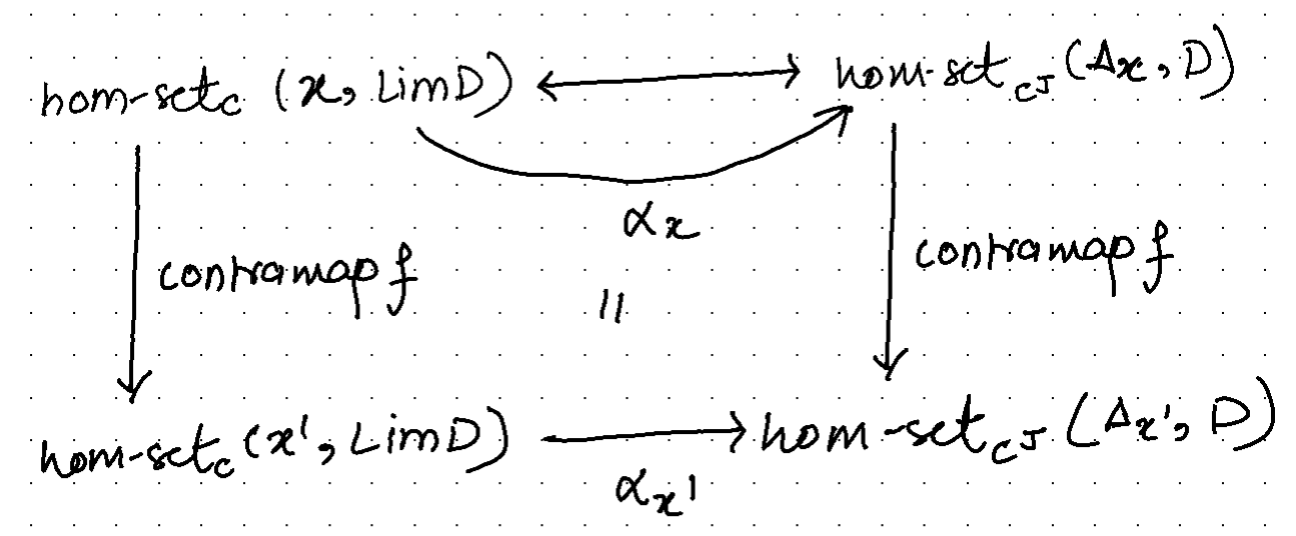 hom-set_C (x, Lim D) hom-set_CJ (Δx, D)
αx
contramap f contramap f
||
hom-set_C (x', Lim D) hom-set_CJ (Δx', D)
αx'